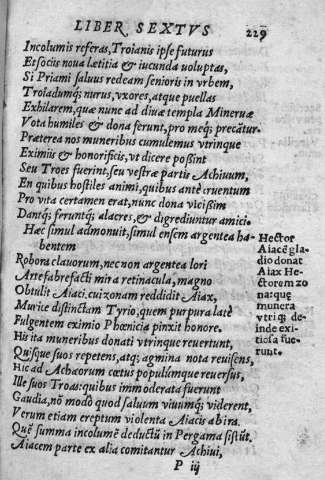 LIBER SEXTVS
229
Incolumis referas, Troianis ipse futurus
Et sociis noua lætitia & iucunda uoluptas,
Si Priami saluus redeam senioris in vrbem,
Troiadumq; nurus, vxores, atque puellas
Exhilarem, quæ nunc ad diuæ templa Mineruæ
Vota humiles & dona ferunt, pro meq; precãtur.
Præterea nos muneribus cumulemus vtrinque
Eximiis & honorificis, vt dicere poßint
Seu Troes fuerint, seu vestræ partis Achiuum,
En quibus hostiles animi, quibus ante cruentum
Pro vita certamen erat, nunc dona vicißim
Dantq; feruntq; alacres, & digrediuntur amici.
Hæc simul admonuit, simul ensem argentea habentem
Robora clauorum, nec non argentea lori
Arte fabrefacti mira retinacula, magno
Obtulit Aiaci, cui zonam reddidit Aiax,
Murice distinctam Tyrio, quem purpura late
Fulgentem eximio Phœnicia pinxit honore.
His ita muneribus donati vtrinque reuertunt,
Quisque suos repetens, atq; agmina nota reuisens,
Hic ad Achæorum cœtus populumque reuersus,
Ille suos Troas: quibus immoderata fuerunt
Gaudia, nõ modò quod saluum viuumq; viderent,
Verum etiam ereptum violenta Aiacis ab ira.
Quẽ summa incolumẽ deductũ in Pergama sistũt.
Aiacem parte ex alia comitantur Achiui,
P iij
Hector
Aiacẽ gla-
dio donat
Aiax He-
ctorem zo
na: quę
munera
vtriq; de-
inde exi-
tiosa fue-
runt.